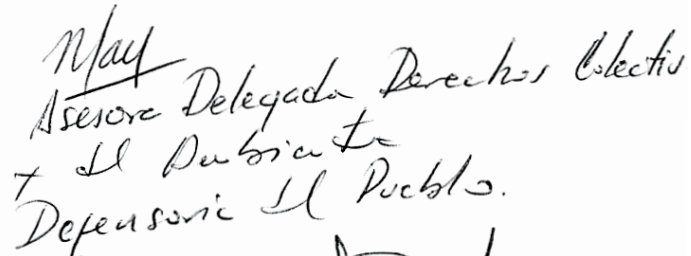 May
Asesora Delegada Derechos Colectiv
y del Ambiente
Defensoria del Pueblo.